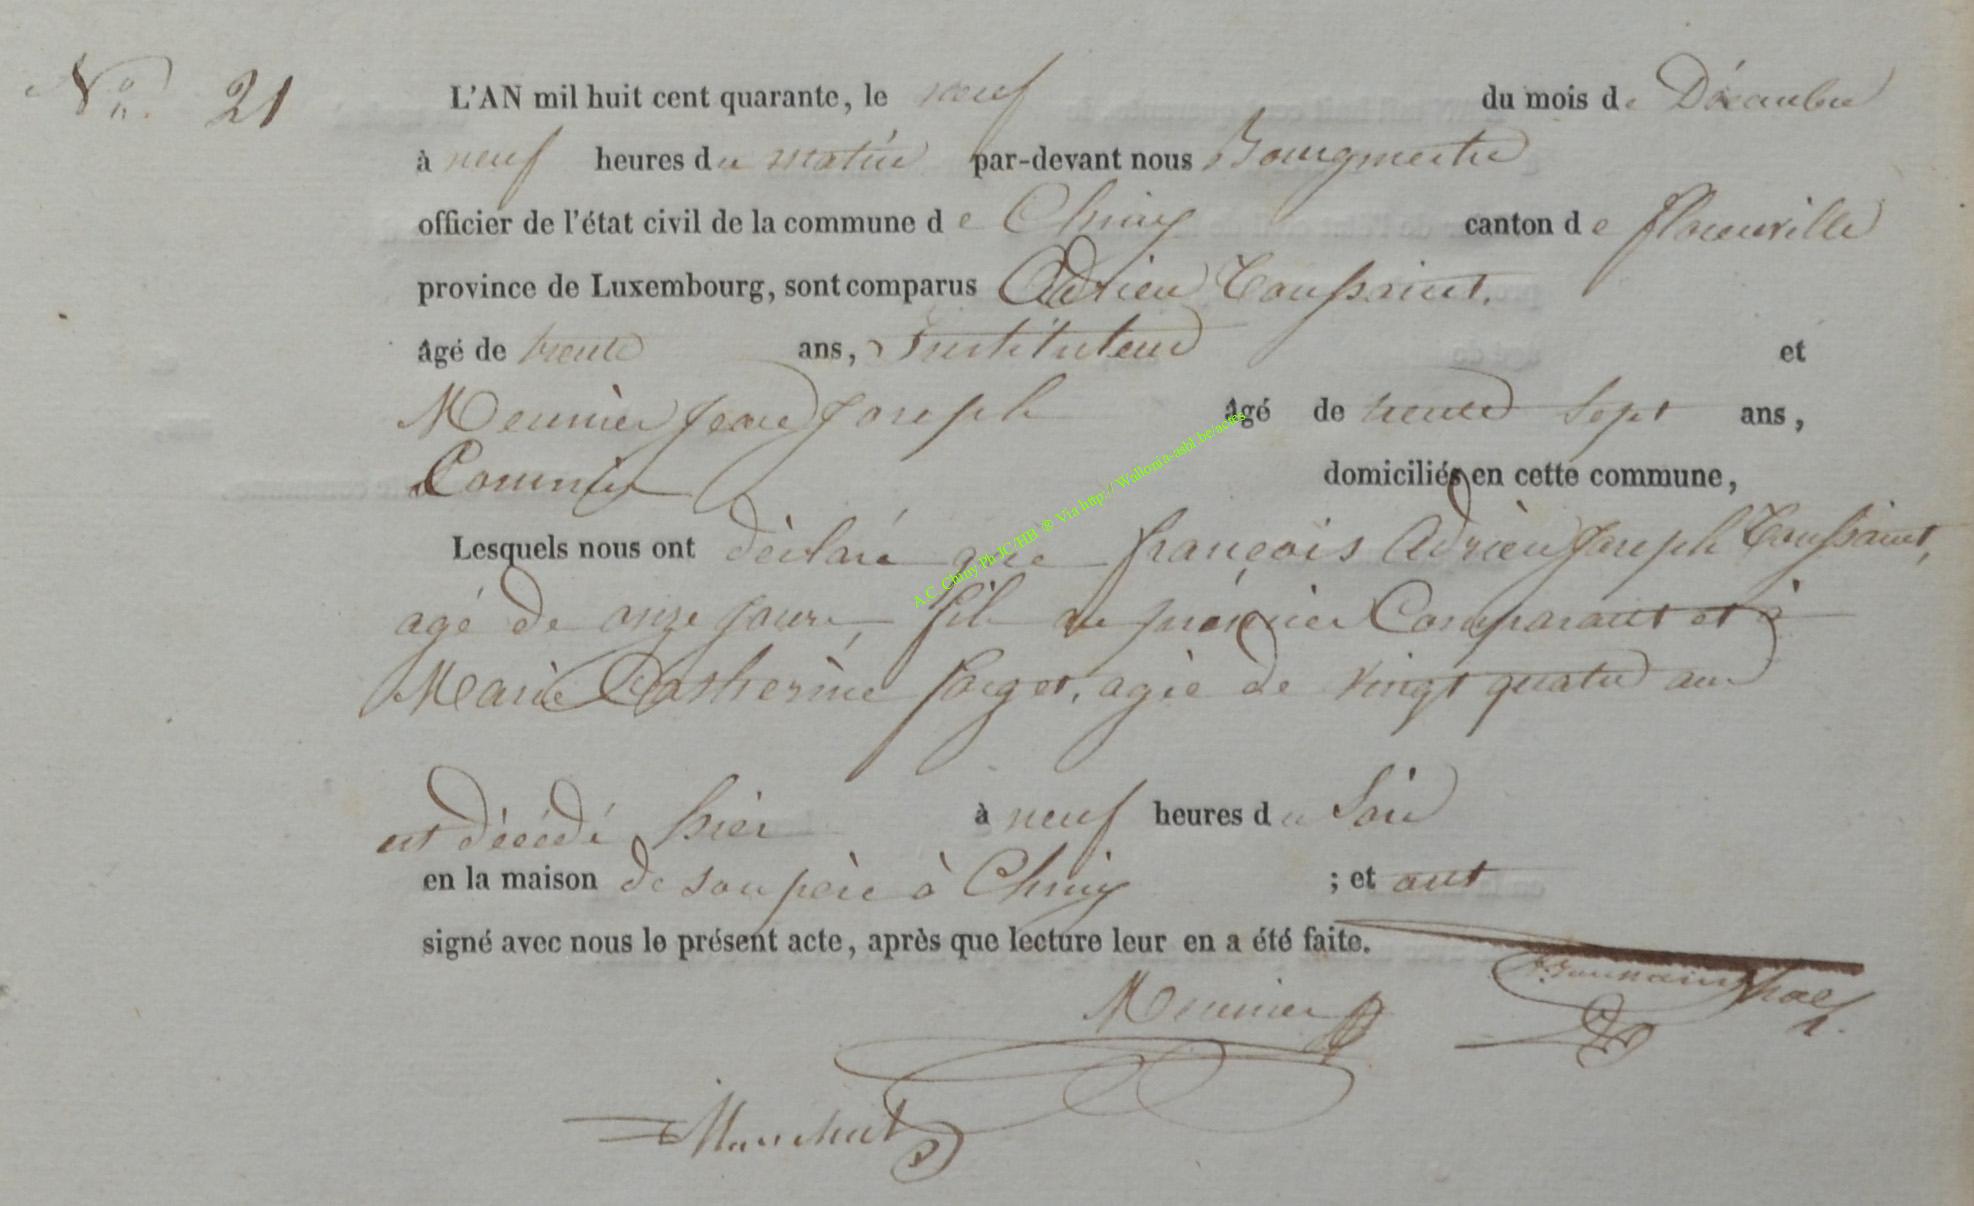 N° 21
L'AN mil huit cent quarante, le neuf du mois de Décembre
à neuf heures du matin par-devant nous Bourgmestre
officier de l'état civil de la commune de Chiny canton de florenville
province de Luxembourg, sont comparus Adrien Toussaint,
âgé de trente ans, Instituteur et
Meunier Jean Joseph âgé de trente sept ans,
Commis domiciliés en cette commune,
Lesquels nous ont déclaré que françois Adrien Joseph Toussaint,
agé de onze jours, fils du prémier Comparant et à
Marie Catherine agée de vingt quatre ans
est décédé hier à neuf heures du Soir
en la maison de son père à Chiny ; et ont
signé avec nous le présent acte, après que lecture leur en a été faite.
Toussaint
Meunier
A.C. Chiny Ph JC/HB ® Via http:// Wallonia-asbl.be/actes